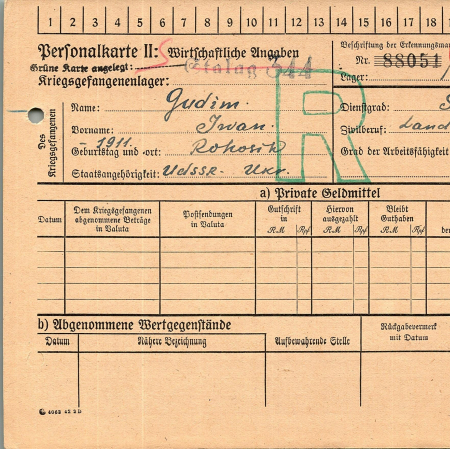 1 2 3 4 5 6 7 8 9 10 11 12 13 14 15 16 17 18
Personalkarte II: Wirtschaftliche Angaben
Beschriftung der Erkennungsmar
Grüne Karte angelegt:
Stalag 344
Nr. 88051
Kriegsgefangenenlager:
Lager:
Des Kriegsgefangenen
Name: Gudim.
Dienstgrad:
Vorname: Iwan.
Zivilberuf: Land
Geburtstag und -ort: -1911. Rokosik
Grad der Arbeitsfähigkeit
Staatsangehörigkeit: UdSSR. Ukr.
R
a) Private Geldmittel
Datum
Dem Kriegsgefangenen abgenommene Beträge in Valuta
Postsendungen in Valuta
Gutschrift in
RM Rpf
Hiervon ausgezahlt
RM Rpf
Bleibt Guthaben
RM Rpf
b) Abgenommene Wertgegenstände
Datum
Nähere Bezeichnung
Aufbewahrende Stelle
Rückgabevermerk mit Datum
4062 42 2D